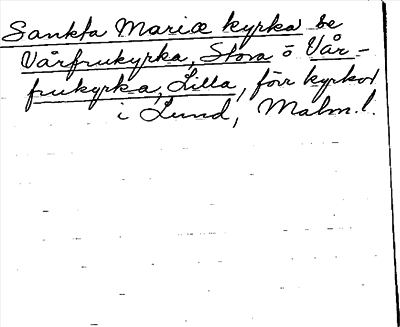 Sankta Mariæ kyrka se
Vårfrukyrka, Stora o Vår-
frukyrka, Lilla, förr kyrkor
i Lund, Malm. l.